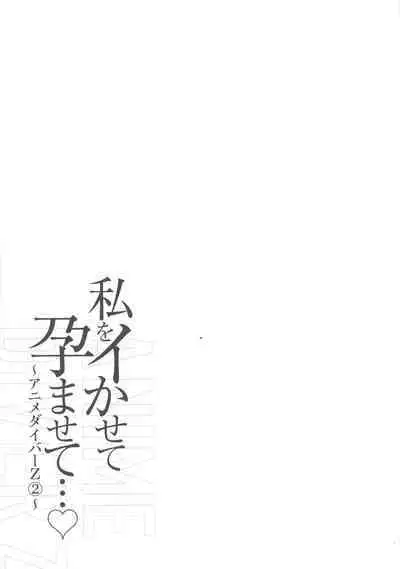 私をイかせて
孕ませて…♡
～アニメダイバーZ②～